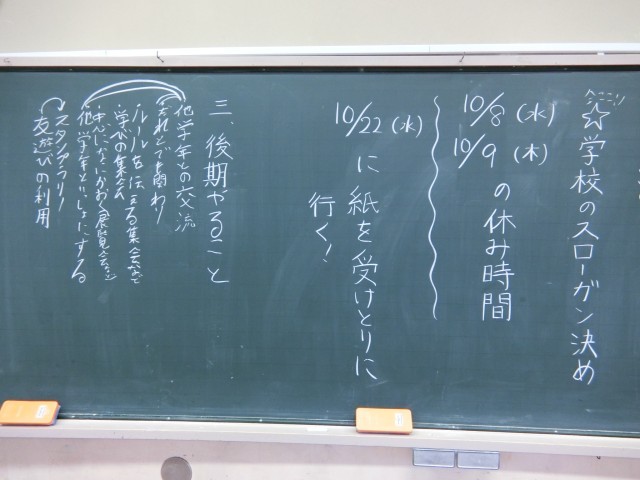 ☆学校のスローガン決め
10/8（水）
10/9（木）
の休み時間
10/22（水）
に紙を受けとりに
行く！
三、後期やること
他学年との交流
ルールを伝える集会など
・学びの集会
他学年といっしょにする
スタンプラリー
友遊びの利用